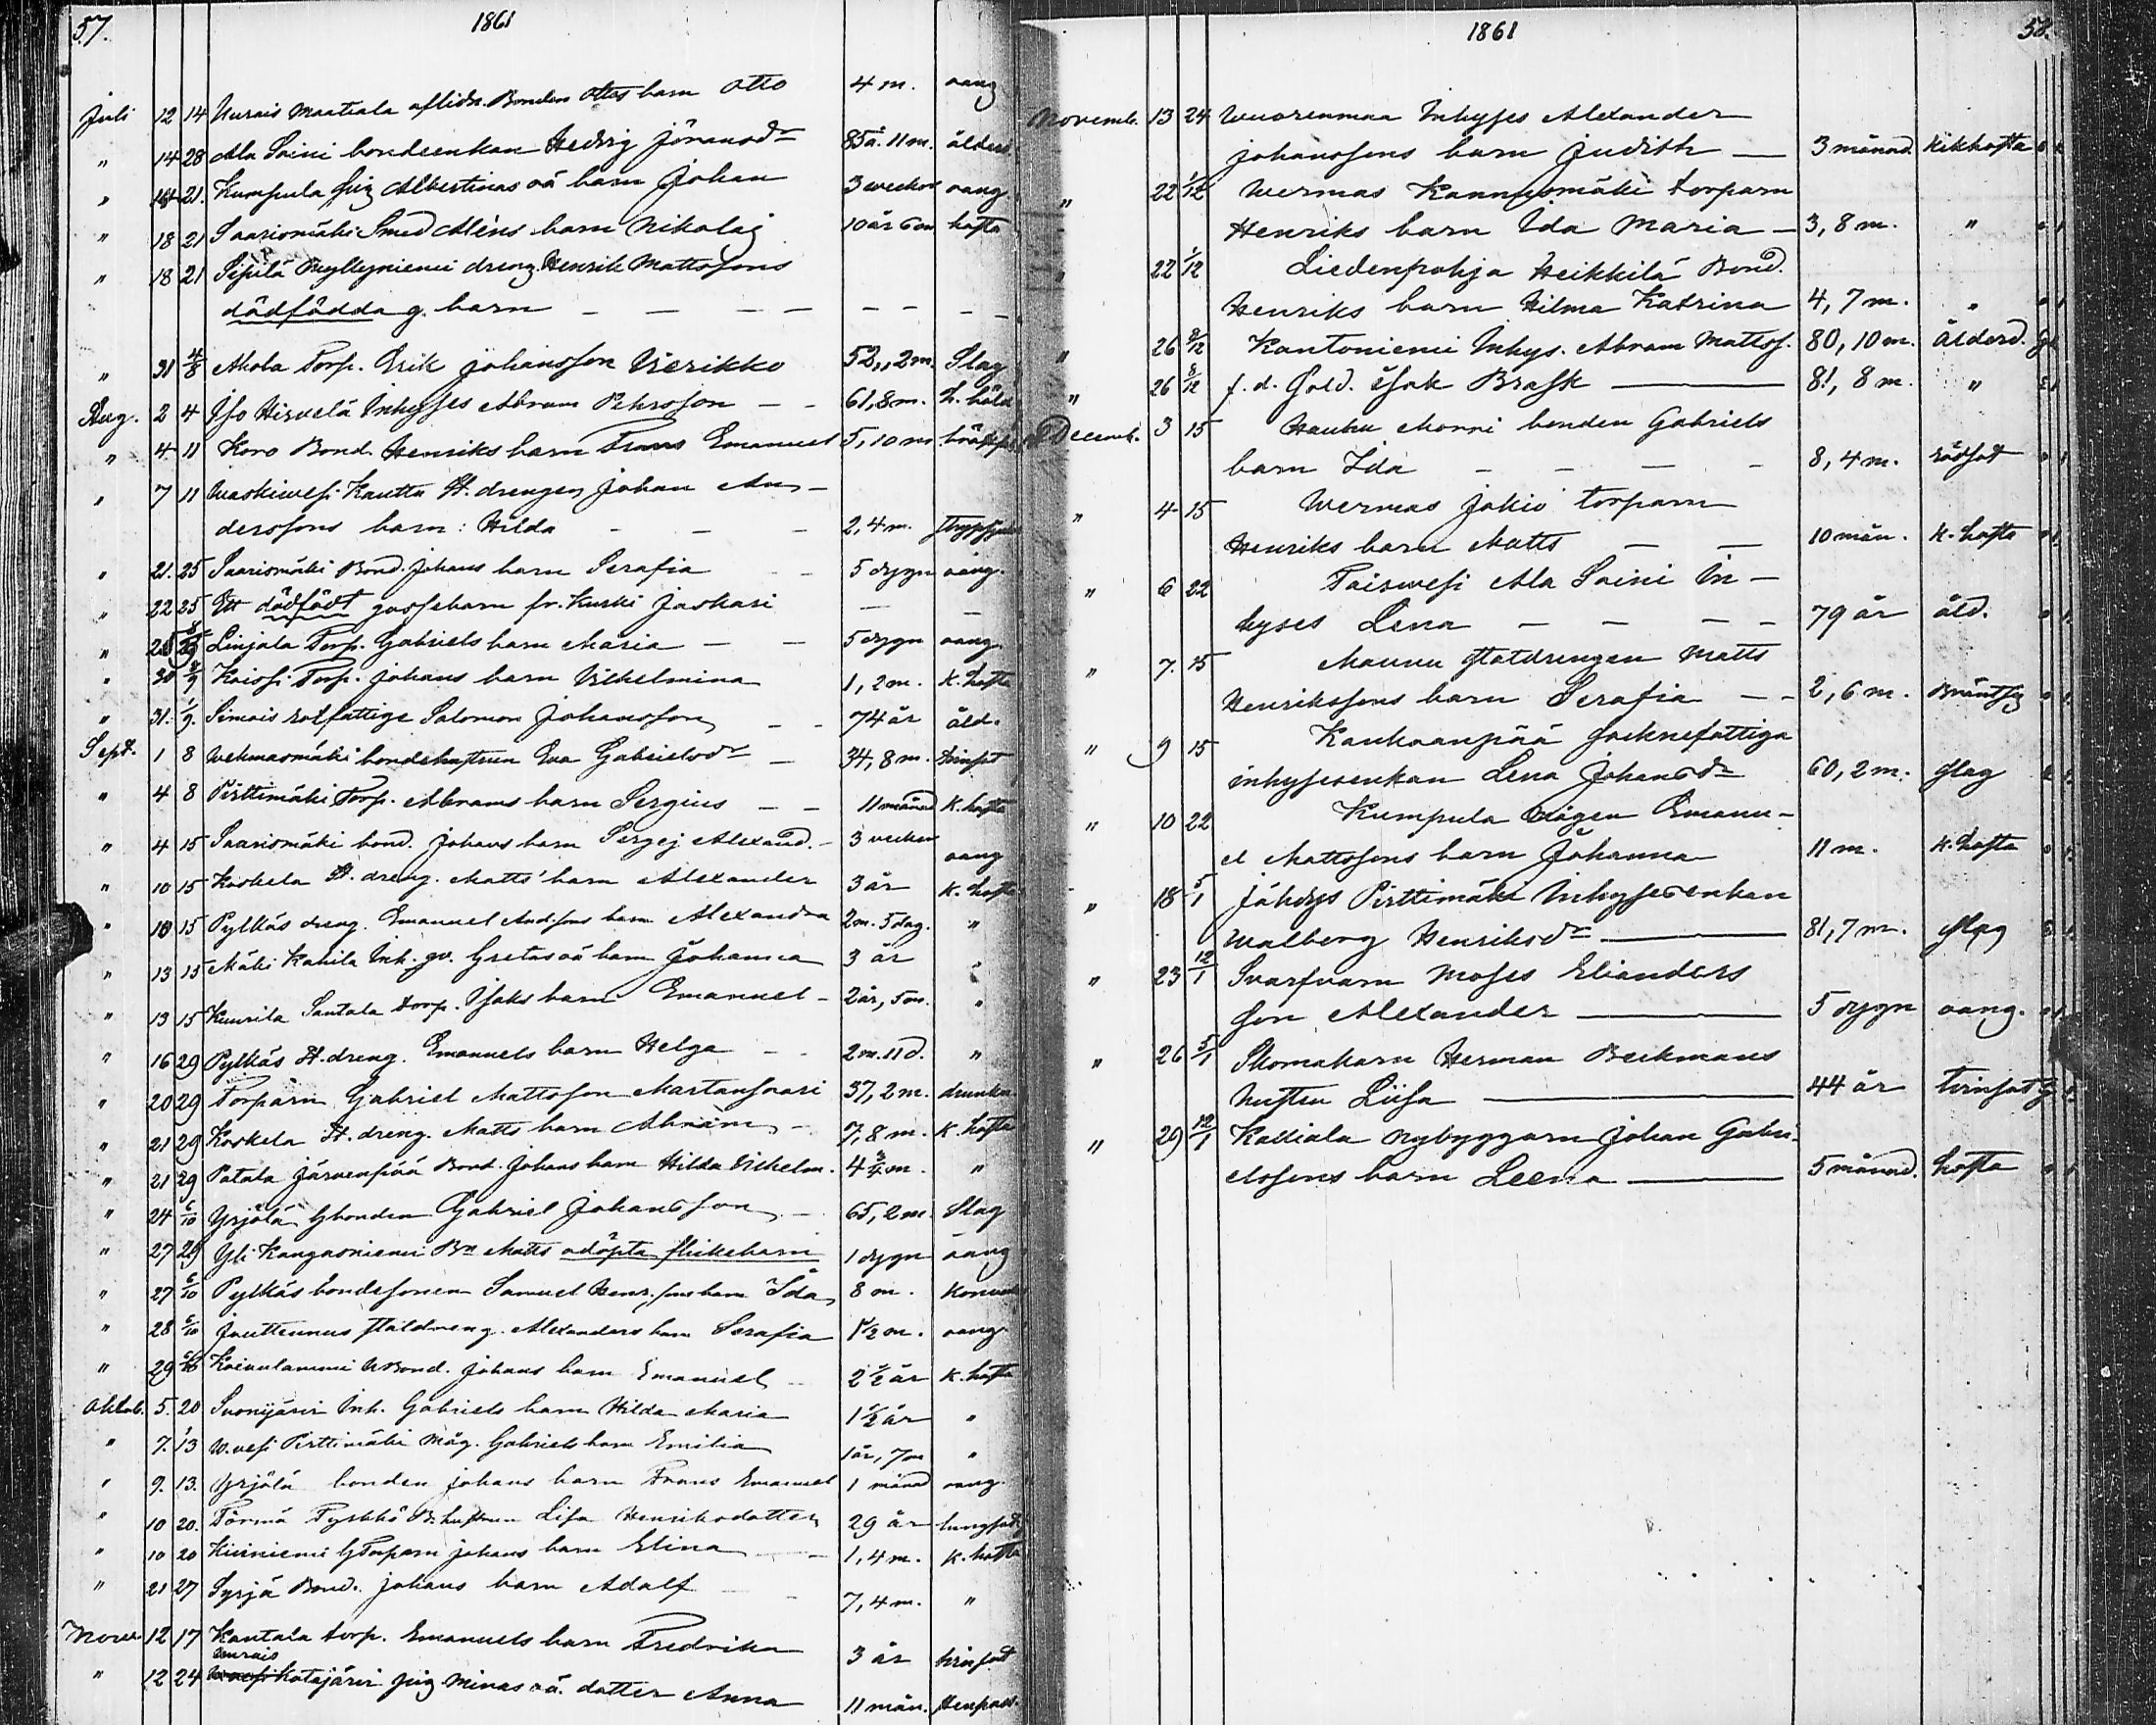 57.
1861
Juli 12 14 Nurais Maatiala aflidn. Bonden Ottos barn Otto 4 m. oang
" 14 28 Ala Soini bondeenkan Hedvig Jöransdr 85 å. 11 m. ålderd.
" 14 21. Kumpula Pig Albertinas oä barn Johan 3 veckor oang.
" 18 21 Saariomäki Smed Aléns barn Nikolaj 10 år 6 m hosta
" 18 21 Sipilä Myllyniemi dreng. Henrik Mattssons
dödfödda g. barn — — — — — —
" 31 4/8 Ahola Torp. Erik Johansson Vierikko 52, 2 m. Slag
Aug. 2 4 Iso Hirvelä Inhyses Abram Pehrsson — 61, 8 m. h. håld
" 4 11 Koro Bond. Henriks barn Frans Emanuel 5, 10 m
" 7 11 Waskiwesi Kautta St. drengen Johan An-
derssons barn: Hilda — — — 2, 4 m.
" 21. 25 Saarismäki Bond. Johans barn Serafia — 5 dygn oang.
" 22 25 Ett dödfödt gossebarn fr. Kurki Jaskari — —
" 25 Linjala Torp. Gabriels barn Maria — — 5 dygn oang.
" 30 8/9 Koiosi Torp. Johans barn Vilhelmina 1, 2 m. K. hosta
" 31. 1/9. Simois rotfattige Salomon Johansson — — 74 år åld.
Sept. 1 8 Wehmasmäki bondehustrun Eva Gabrielsdr — 34, 8 m. tvinsot
" 4 8 Pirttimäki Torp. Abrams barn Sergius — — 11 månad K. hosta
" 4 15 Saarismäki bond. Johans barn Sergej Alexand. — 3 veckor oang
" 10 15 Koskela St. dreng. Matts' barn Alexander 3 år K. hosta
" 10 15 Pylkäs dreng. Emanuel And.sons barn Alexandra 2 m. 5 dag. "
" 13 15 Mäki Kahila Ink. qv. Gretas oä barn Johanna 3 år "
" 13 15 Kuurila Santala torp. Isaks barn Emanuel — 2 år, 5 m. "
" 16 29 Pylkäs St. dreng. Emanuels barn Helga — 2 m. 11 d. "
" 20 29 Torparn Gabriel Mattsson Martansaari 37, 2 m. drunkn
" 21 29 Koskela St. dreng. Matts barn Abram — 7, 8 m. K. hosta
" 21 29 Patala Järvenpää Bond. Johans barn Hilda Vilhelm. 4 3/4 m. "
" 24 6/10 Yrjölä Gbonden Gabriel Johansson — 65, 2 m. Slag
" 27 29 Yli Kangasniemi Bn Matts odöpta flickebarn 1 dygn oang
" 27 6/10 Pylkäs bondesonen Samuel Henr.sons barn Ida 8 m.
" 28 6/10 Juuttennus statdreng. Alexanders barn Serafia 1 1/2 m. oang
" 29 6/10 Koivulammi Bond. Johans barn Emanuel — 2 1/2 år K. hosta
Oktob. 5. 20 Suonijärvi Ink. Gabriels barn Hilda Maria 1 1/2 år "
" 7. 13 W.vesi Pirttimäki Måg. Gabriels barn Emilia 1 år, 7 m "
" 9. 13. Yrjölä bonden Johans barn Frans Emanuel 1 månad oang.
" 10 20. Törmä Tyrkkö B. hustrun Lisa Henriksdotter 29 år lungsot
" 10 20 Kiviniemi GTorparn Johans barn Elina — 1, 4 m. K. hosta
" 21 27 Syrjä Bond. Johans barn Adolf — 7, 4 m. "
Nov. 12 17 Kantala torp. Emanuels barn Fredrika 3 år tvinsot
" 12 24 Nurais Katajärvi pig Minas oä. dotter Anna 11 mån.
1861
58.
Novemb. 13 24 Wuorenmaa Inhyses Alexander
Johanssons barn Judith — 3 månad Kikhosta
" 22 1/12 Wermas Kannusmäki torparn
Henriks barn Ida Maria — 3, 8 m. "
" 22 1/12 Liedenpohja Heikkilä Bond.
Henriks barn Hilma Katrina 4, 7 m. "
" 26 8/12 Kantoniemi Inhys. Abram Mattss. 80, 10 m. ålderd.
" 26 8/12 f. d. Sold. Isak Brask — 81, 8 m. "
Decemb. 3 15 Hauhu Monni bonden Gabriels
barn Ida — — — — 8, 4 m. rödsot
" 4 15 Wermas Jokio torparn
Henriks barn Matts — — 10 mån. K. hosta
" 6 22 Toisvesi Ala Soini In-
hyses Lena — — — — 79 år åld.
" 7. 15 Mannu statdrengen Matts
Henrikssons barn Serafia — — 2, 6 m.
" 9 15 Kankaanpää socknefattiga
inhysesenkan Lena Johansdr 60, 2 m. slag
" 10 22 Kumpula mågen Emanu-
el Mattssons barn Johanna 11 m. K. hosta
" 18 5/1 Jähdys Pirttimäki Inhysesenkan
Walborg Henriksdr — 81, 7 m. slag
" 23 12/1 Svarfvarn Moses Elianders
son Alexander — 5 dygn oang.
" 26 5/1 Skomakarn Herman Beckmans
hustru Liisa — 44 år tvinsot
" 29 12/1 Kalliala nybyggarn Johan Gabri-
elssons barn Leena — 5 månad. hosta